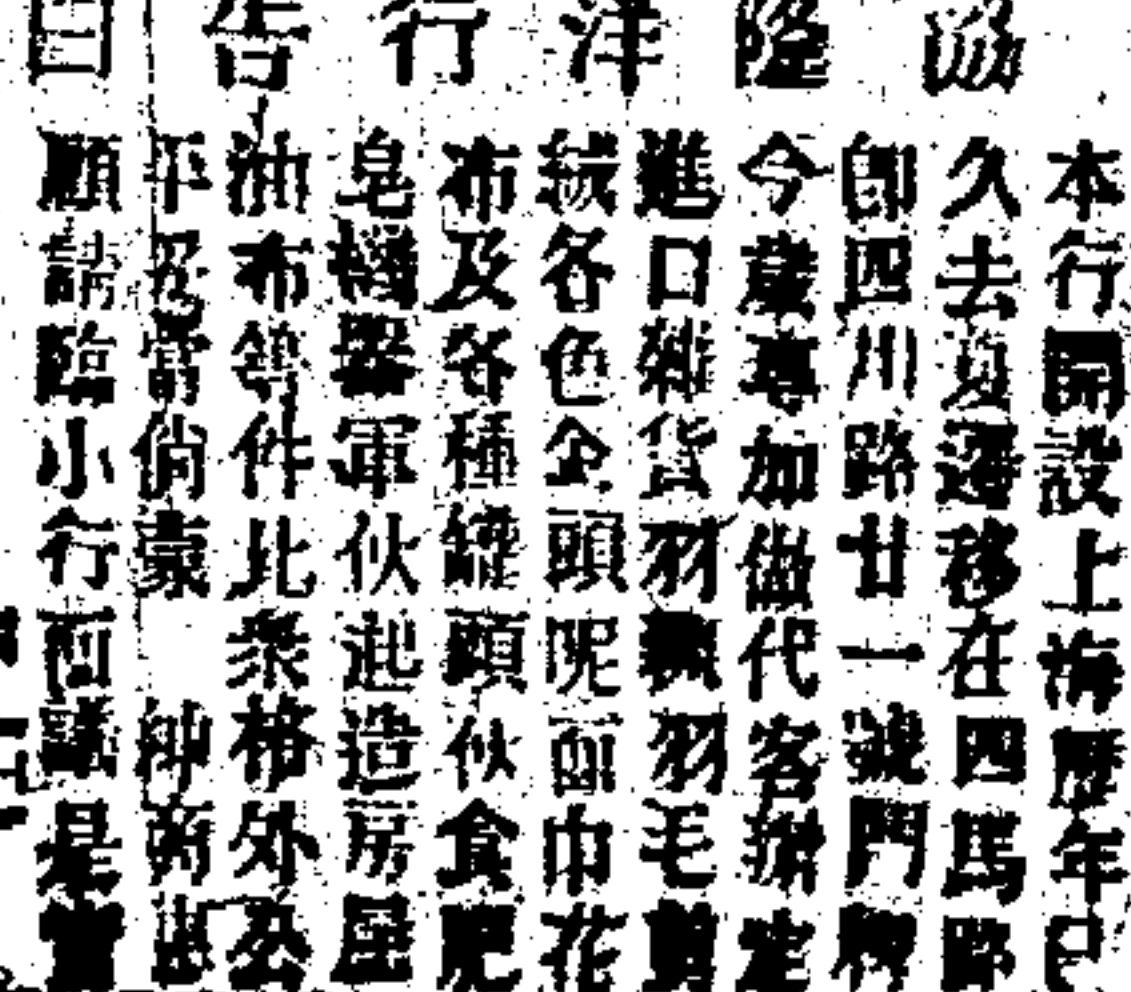 協隆洋行告白
本行開設上海歷年已
久去夏遷移在四馬路
卽四川路廿一號門牌
今歲專加做代客辦定
進口雜貨羽氈羽毛剪
絨各色企頭呢面巾花
布及各種罐頭伙食肥
皂機器軍伙起造房屋
油布等件比衆格外公
平及常倘蒙 紳商惠
顧請臨小行面議是